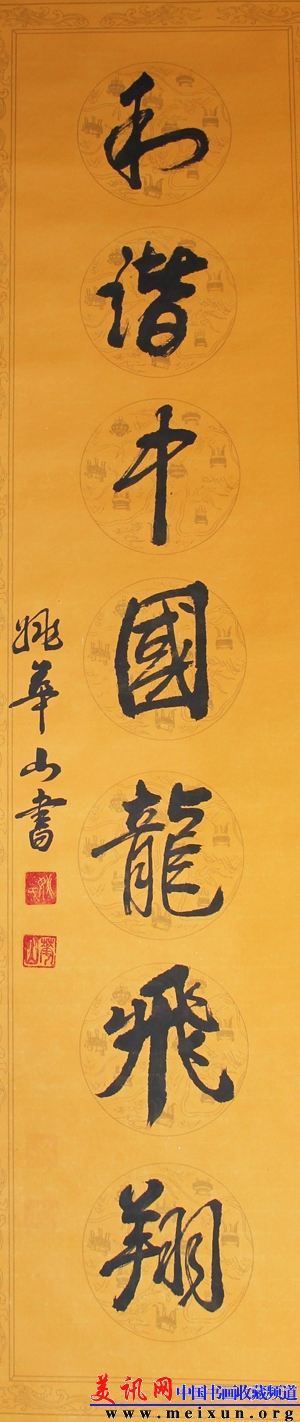 和諧中國龍飛翔
姚華山書
美讯网 中国书画收藏频道
www.meixun.org